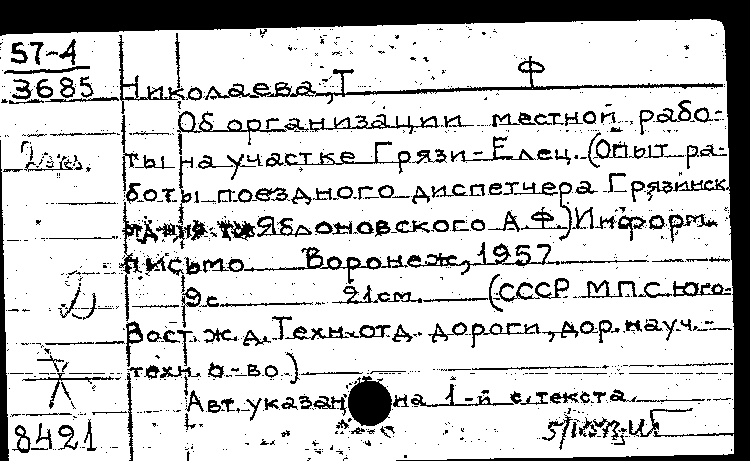 57-4
3685
Ф
Николаева, Т
Об организации местной рабо-
2 экз.
ты на участке Грязи-Елец. (Опыт ра-
боты поездного диспетчера Грязинск.
Яблоновского А.Ф.) Информ.
письмо. Воронеж, 1957.
9 с. 21 см. (СССР МПС. Юго-
Вост. ж.д. Техн. отд. дороги, дор. науч.-
техн. о-во)
Авт. указан на 1-й с. текста.
8421